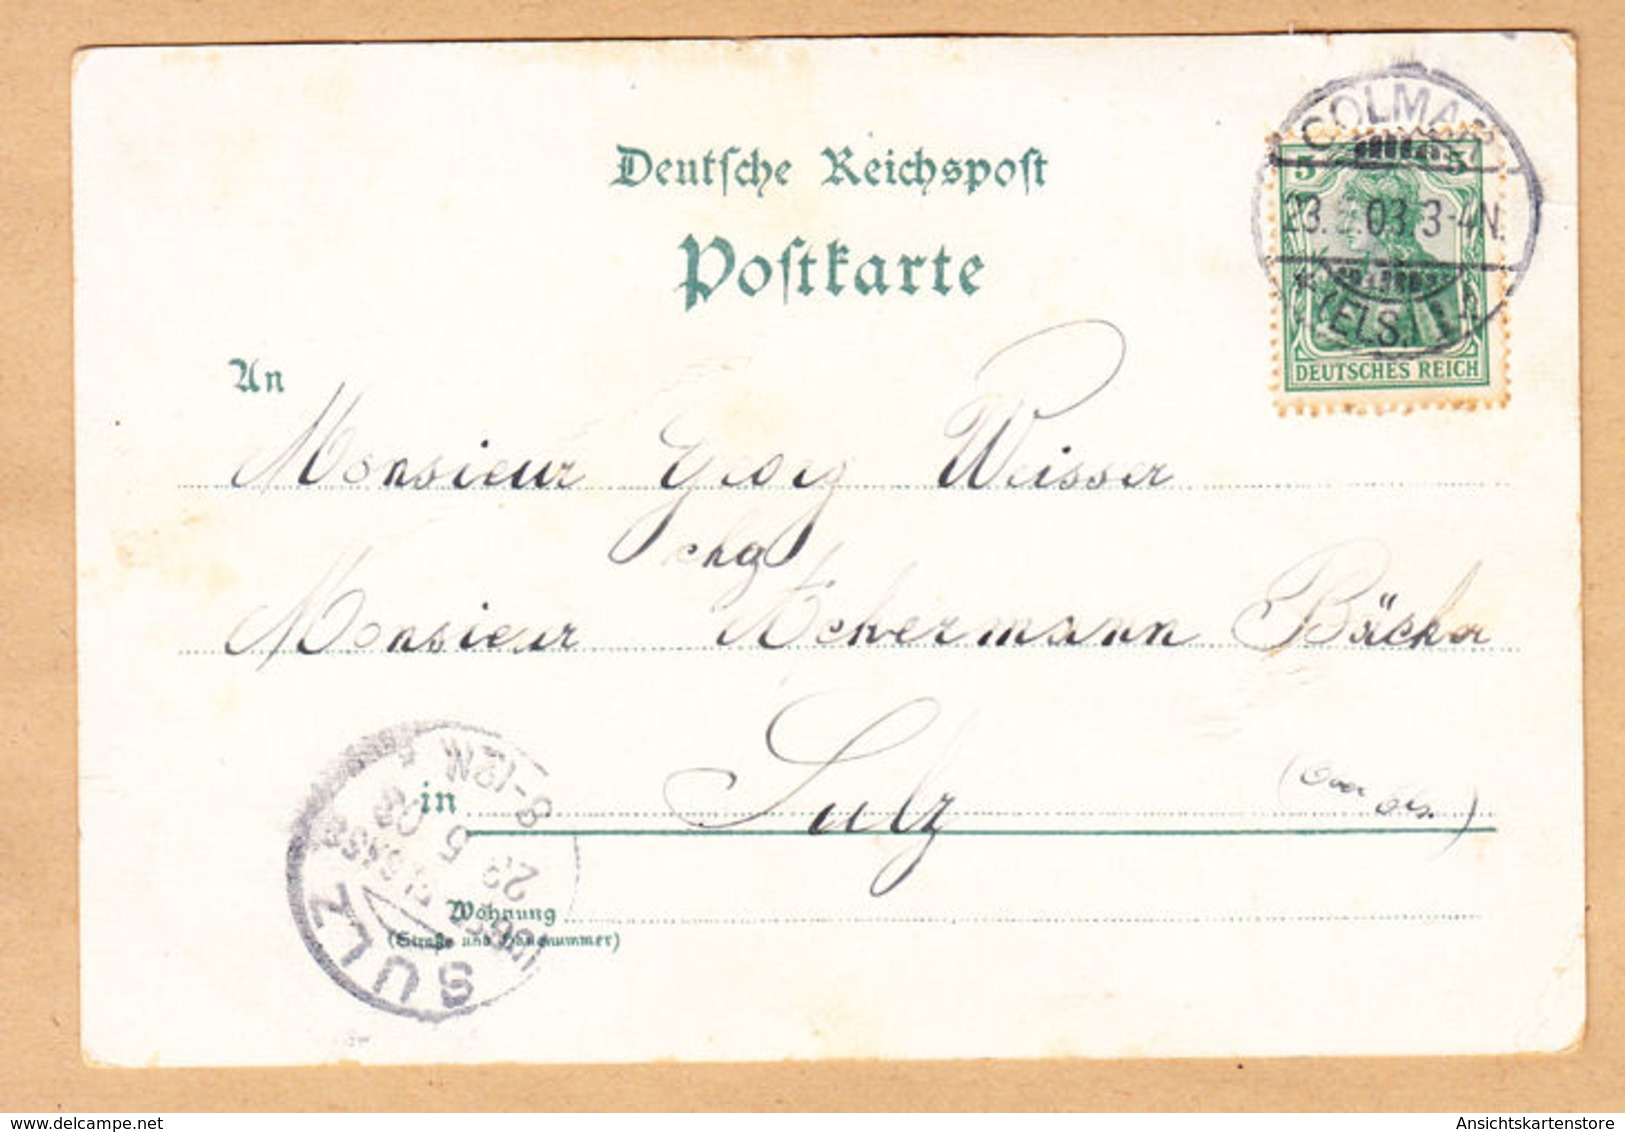 Deutsche Reichspost
Postkarte
COLMAR
5 5
23. 5. 03 3-4N.
(ELS.)
DEUTSCHES REICH
An
Monsieur Georg Weisser
chez
Monsieur Ackermann Bäcker
in Sulz (Ober Els.)
8-12N
23 5 03
SULZ
Wohnung
(Straße und Hausnummer)
Ansichtskartenstore